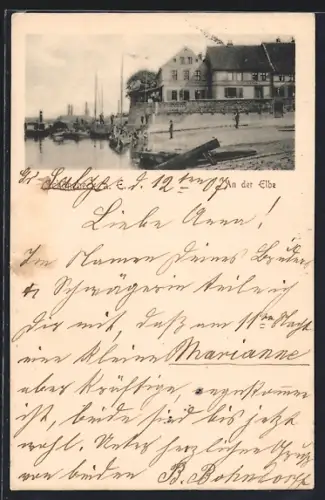 Gr. Salze d. 12ten 07
An der Elbe
Liebe Anna!
Im Namen Deines Bruders
& Schwägerin teile ich
Dir mit, daß am 11ten Nacht
eine kleine Marianne
aber kräftige, angekommen
ist, beide sind bis jetzt
wohl. Unter herzlichen Gruß
von beiden B. Bohndorf